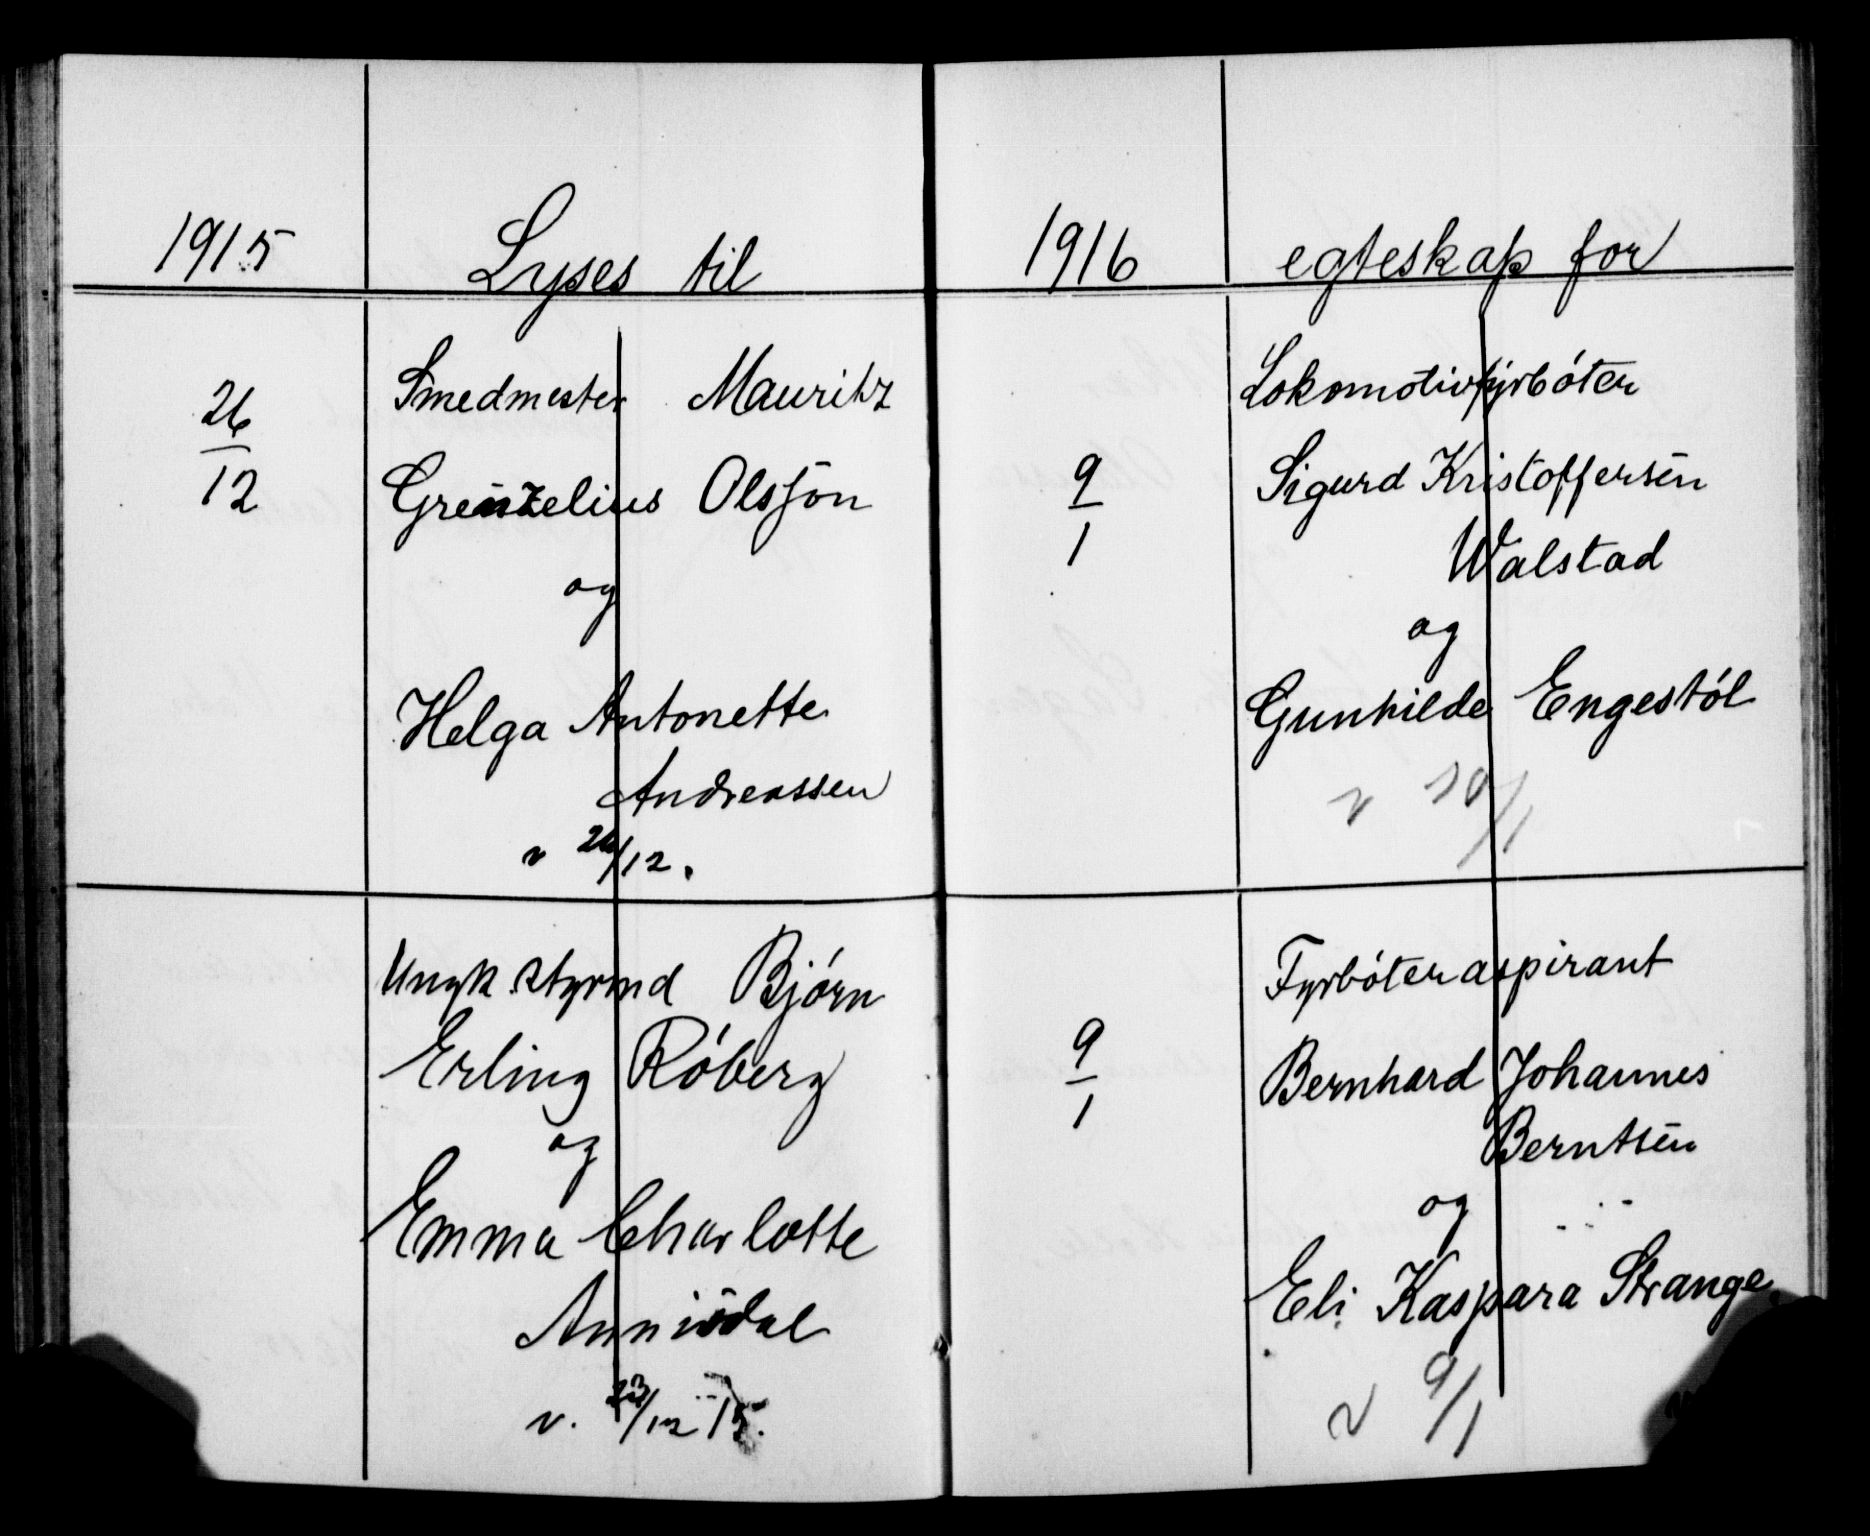 1915 Lyses til
26/12
Smedmester Mauritz
Grenzelius Olsson
og
Helga Antonette
Andreassen
v 26/12.
Ungk. styrmd Bjórn
Erling Róberg
og
Emma Charlotte
v. 23/12 15.
1916 egteskap for
Lokomotivfyrbóter
9/1
Sigurd Kristoffersen
Walstad
og
Gunhilde Engestól
v 10/1
Fyrbóteraspirant
9/1
Bernhard Johannes
Berntsen
og
Eli Kaspara Strange
v 9/1